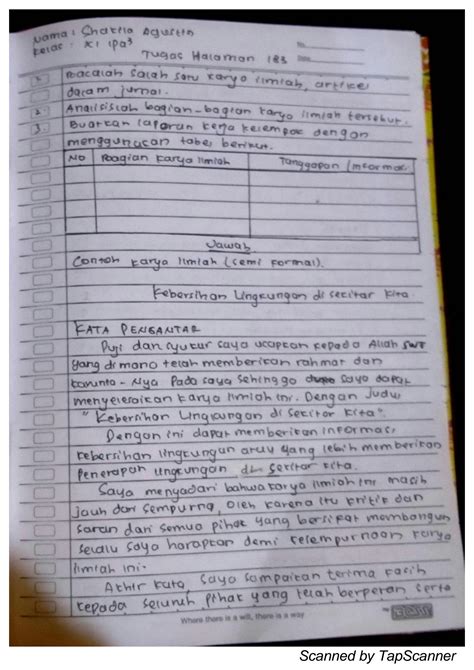 Nama : Shakila Agustin
Kelas : XI ipa³
No.
Date
Tugas Halaman 183
1. Bacalah salah satu karya ilmiah, artikel
dalam jurnal.
2. Analisislah bagian-bagian karya ilmiah tersebut.
3. Buatkan laporan kerja kelempok dengan
menggunakan tabel berikut.
No Bagian karya ilmiah Tanggapan /
Jawab
Contoh karya Ilmiah (semi formal).
Kebersihan Lingkungan di sekitar kita
KATA PENGANTAR
Puji dan syukur saya ucapkan kepada Allah SWT
yang di mana telah memberikan rahmat dan
karunia-Nya pada saya sehingga saya dapat
menyelesaikan karya ilmiah ini. Dengan Judul
"Kebersihan Lingkungan di sekitar kita".
Dengan ini dapat memberikan informasi
kebersihan lingkungan atau yang lebih memberikan
Penerapan lingkungan di sekitar kita.
Saya menyadari bahwa karya ilmiah ini masih
jauh dari sempurna, oleh karena itu kritik dan
saran dari semua pihak yang bersifat membangun
selalu saya harapkan demi kelempurnaan karya
ilmiah ini.
Akhir kata, saya sampaikan terima kasih
kepada seluruh pihak yang telah berperan serta
Where there is a will, there is a way
Scanned by TapScanner